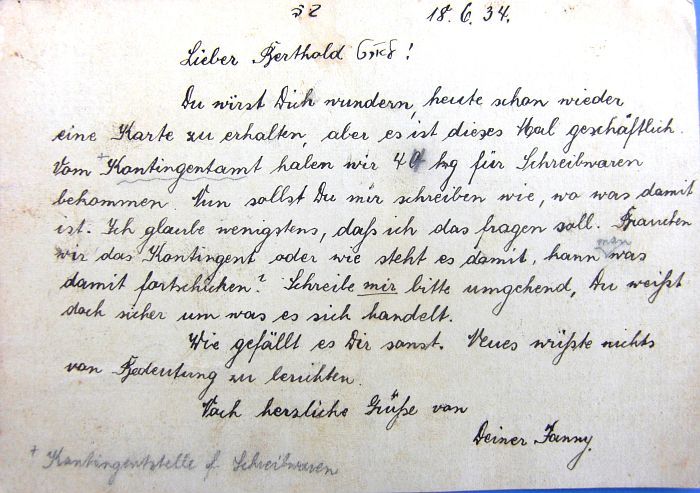 18.6.34.
Lieber Berthold !
Du wirst Dich wundern, heute schon wieder
eine Karte zu erhalten, aber es ist dieses Mal geschäftlich.
Vom + Kontingentamt haben wir 40 kg für Schreibwaren
bekommen. Nun sollst Du mir schreiben wie, wo was damit
ist. Ich glaube wenigstens, daß ich das fragen soll. Brauchen
wir das Kontingent oder wie steht es damit, kann man was
damit fortschicken? Schreibe mir bitte umgehend, Du weißt
doch sicher um was es sich handelt.
Wie gefällt es Dir sonst. Neues wüßte nichts
von Bedeutung zu berichten.
Noch herzliche Grüße von
Deiner Fanny.
+ Kontingentstelle f. Schreibwaren